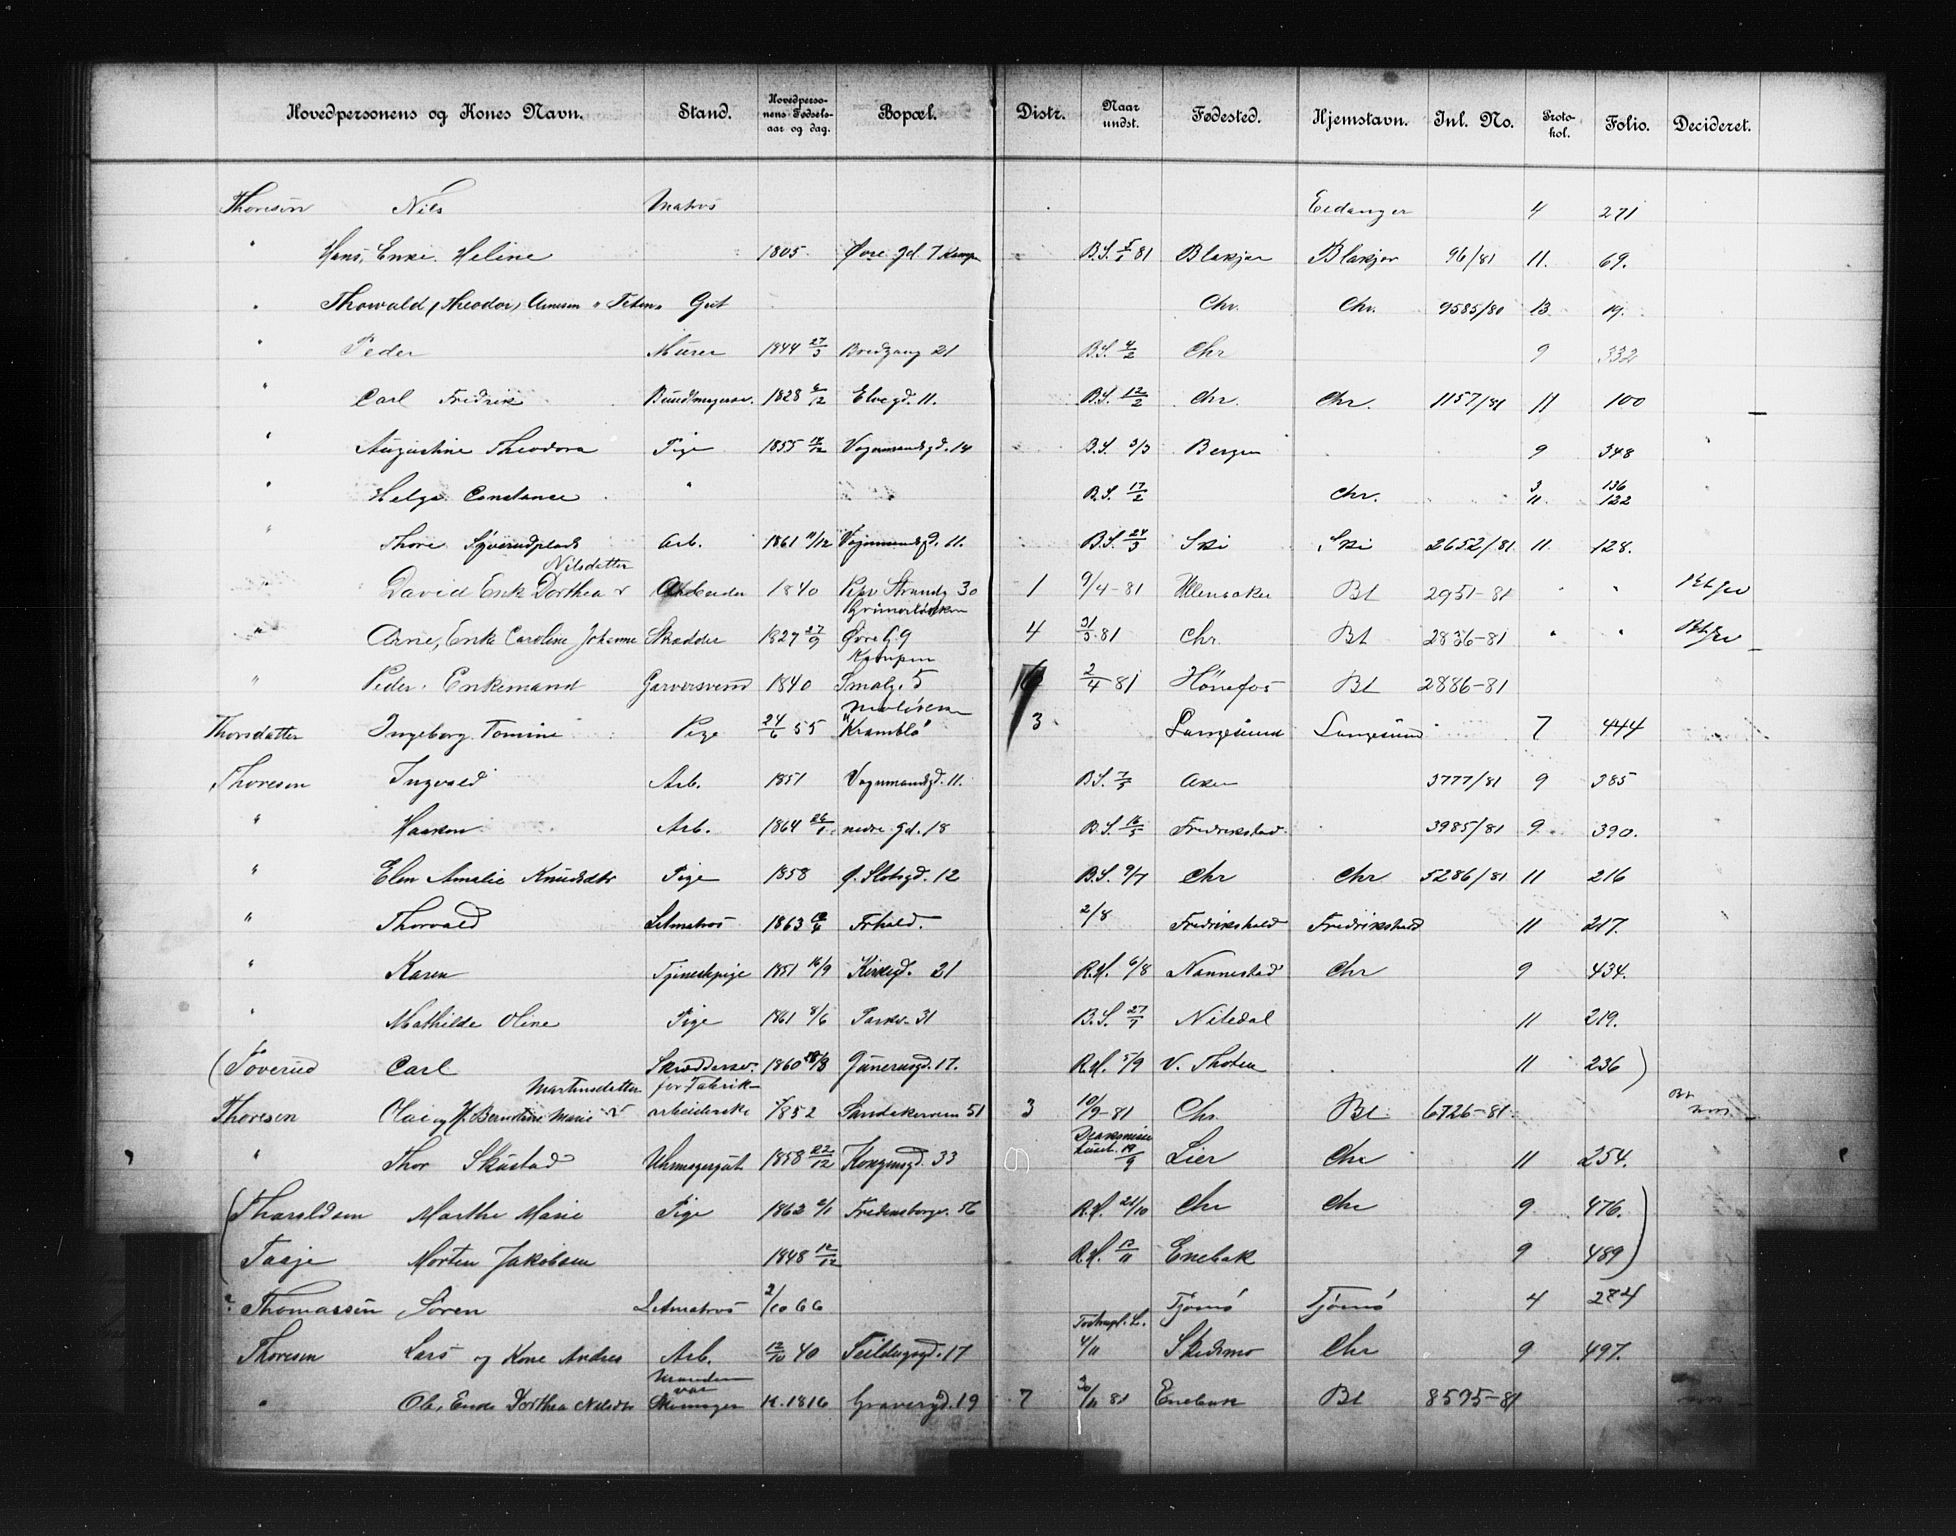 Hovedpersonens og Kones Navn. Stand. Hovedperso-nens Fødsels-aar og dag. Bopæl. Distr. Naar undst. Fødested. Hjemstavn. Inl. No. Proto-kol. Folio. Decideret.
Thoresen Nils Matros Eidanger 4 271
" Hans, Enke. Heline 1805 Øvre gd. 7 Kamp B.S. 5/1 81 Blakjer Blakjer 96/81 11. 69.
" Thorwald (Theodor) Gut Chr. Chr. 9585/80 13 19.
" Peder Murer 1844 27/3 Bredgang 21 B.S. 4/2 Chr 9 332
" Carl Fredrik Bundtmagersv. 1828 6/12 Elvegd. 11. B.S. 12/2 Chr. Chr. 1157/81 11 100
" Augustine Theodora Pige 1855 Vognmandsgd. 14 B.S. 3/3 Bergen 9 348
" Helga Constance " B.S. 17/2 Chr. 3 11 136 122
" Thore Arb. 1861 11/12 Vognmandsgd. 11. B.S. 24/3 Ski Ski 2652/81 11 128.
Nilsdatter
" David Enke Dorthea 1840 30 1 9/4-81 Ullensaker Bt 2951-81 " "
" Arne, Enke Caroline Johanne Skrædder 1827 27/9 Øvre G. 9 4 31/3 81 Chr. Bt 2836-81 " "
Kampen
" Peder. Enkemand Garversvend 1840 Smalg. 5 2/4 81 Hönefos Bt 2886-81
Thorsdatter Ingeborg Tomine Pige 24/6 55 "Krambló" 3 Langesund Langesund 7 444
Thoresen Ingvald Arb. 1851 Vognmandsgd. 11. B.S. 7/5 Aker 3777/81 9 385
" Haakon Arb. 1864 26/1 nedre gd. 18 B.S. 16/5 Fredrikstad 3985/81 9 390.
" Elen Amalie Knudsdtr Pige 1858 Slotsgd. 12 B.S. 9/7 Chr Chr 5286/81 11 216
" Thorvald Letmatros 1863 Frhald. 2/8 Fredrikshald Fredrikshald 11 217.
" Karen Tjenestepige 1851 16/9 Kirkegd. 21 R.H. 6/8 Nannestad Chr 9 434.
" Mathilde Oline Pige 1861 8/6 Parkv. 31 B.S. 27/7 Nitedal 11 219.
(Toverud Carl Skræddersv. 1860 Grünersgd. 17. R.H. 5/9 V. Thoten 11 236)
Martinsdatter før Fabrik-
Thoresen Olai og H. Berntine Marie arbeiderske 1852 Sandakerveien 51 3 10/9-81 Chr. Bt 6726-81
" Thor Skustad Uhrmagergut 1858 22/12 Kongensgd. 33 19/9 Lier Chr 11 254.
(Tharaldsen Marthe Marie Pige 1862 Fredensborgv. 56 R.H. 21/10 Chr Chr 9 476.
Taaje Morten Jakobsen 1848 12/12 R.H. 12/11 Enebak 9 489)
? Thomassen Sören Letmatros 2/10 66 Tjömö Tjömö 4 284
Thoresen Lars og Kone Andrea Arb. 12/10 40 Teilverksgd. 17 4/11 Skedsmo Chr 9 497.
Manden var
" Ole, Enke Dorthea Nilsdtr Skomager K. 1816 Gravergd. 19 7 30/11 81 Enebak Bt 8595-81